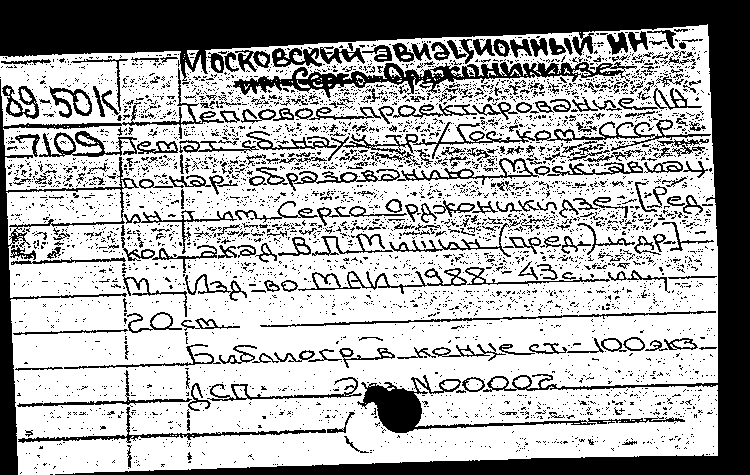 Московский авиационный ин-т.
им. Серго Орджоникидзе
89-50К
Тепловое проектирование ЛА:
7109
Темат. сб. науч. тр. / Гос. ком. СССР
по нар. образованию, Моск. авиац.
ин-т им. Серго Орджоникидзе; [Ред-
кол. акад. В.П. Мишин (пред.) и др.] -
М.: Изд-во МАИ, 1988. - 43 с.: ил.;
20 см.
Библиогр. в конце ст. - 100 экз.
ДСП. Экз. N00002